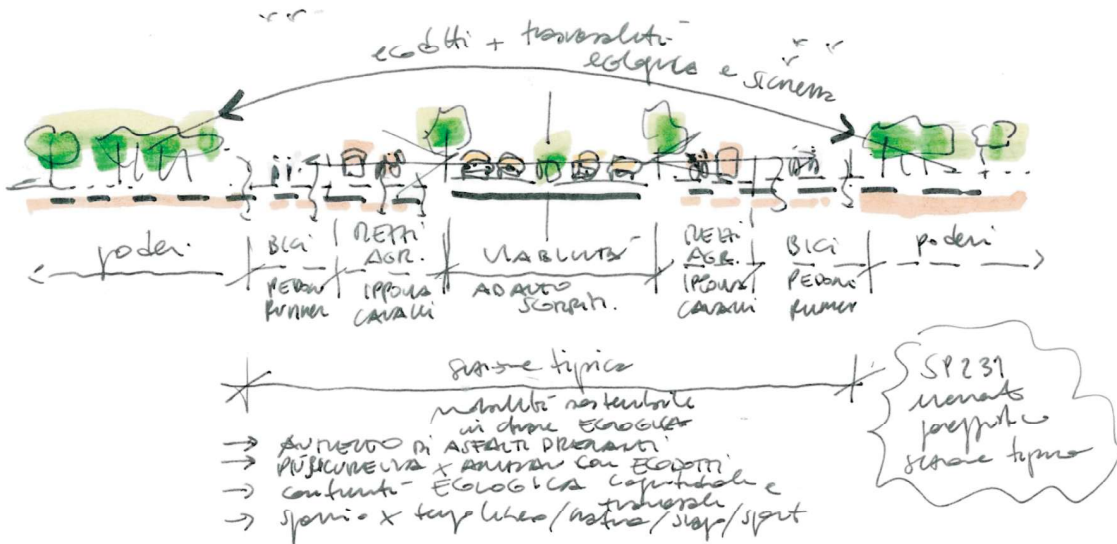 ecodotti + trasversalità
ecologica e sicurezza
poderi
BICI
PEDONI
RUNNER
MEZZI
AGR.
IPPOVIA
CAVALLI
VIABILITÀ
AD AUTO
SCORRIM.
MEZZI
AGR.
IPPOVIA
CAVALLI
BICI
PEDONI
RUNNER
poderi
sezione tipica
mobilità sostenibile
in chiave ECOLOGICA
→ AUMENTO DI ASFALTI DRENANTI
→ PIÙ SICUREZZA X ANIMALI CON ECODOTTI
→ continuità ECOLOGICA longitudinale e
trasversale
→ spazio x tempo libero/natura/svago/sport
SP231
sezione tipica